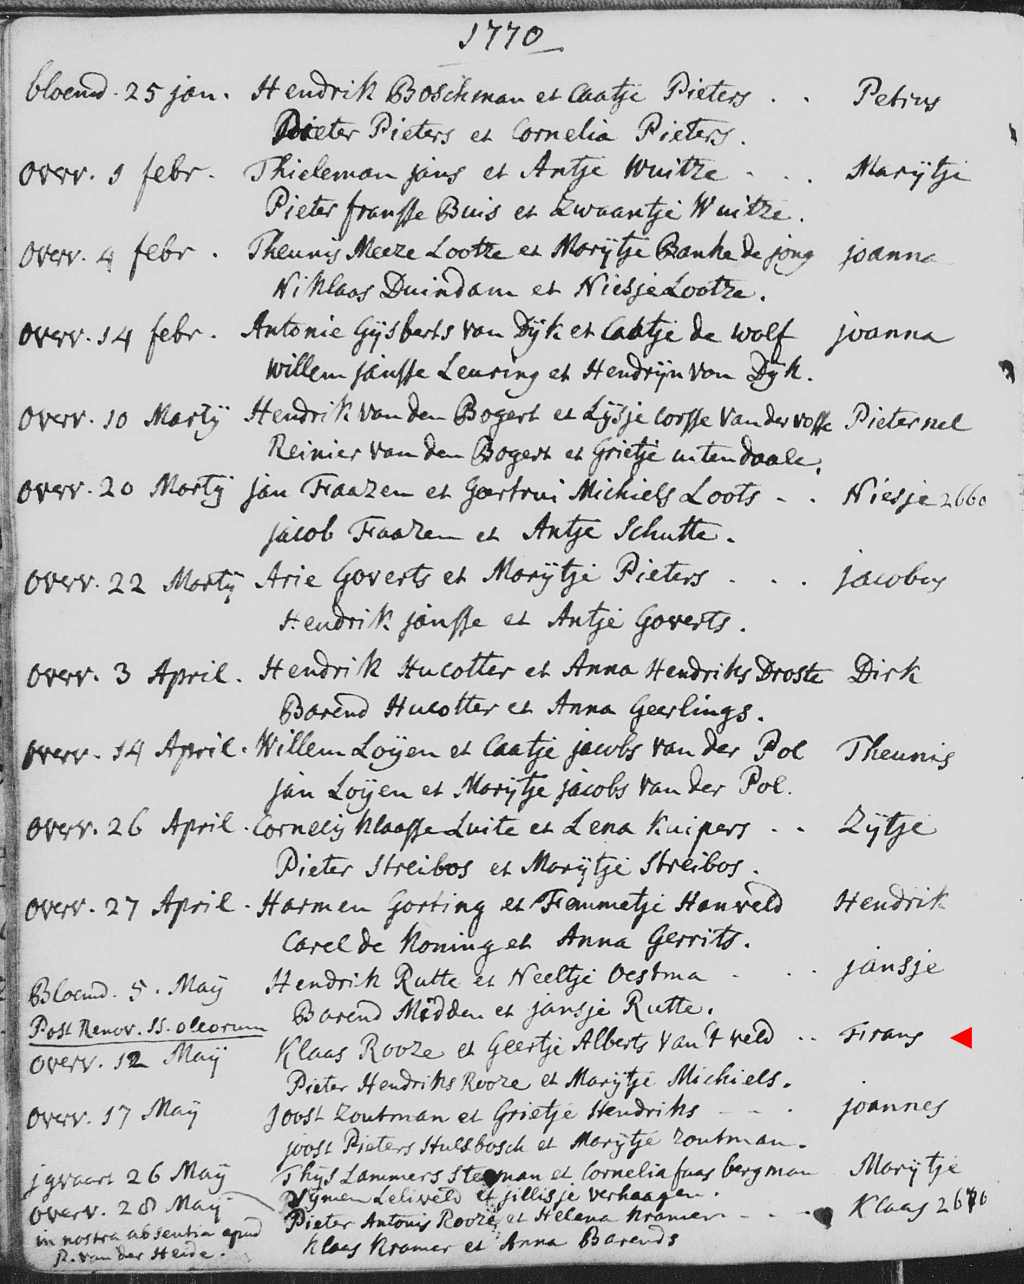 1770
bloemd. 25 jan. Hendrik Boschman et Caatje Pieters . . Petrus
Pieter Pieters et Cornelia Pieters.
overv. 1 febr. Thieleman jans et Antje Wuitze . . . Marijtje
Pieter fransse Buis et Zwaantje Wuitze.
overv. 4 febr. Theunis Meeze Lootze et Marijtje Banke de jong joanna
Niklaas Duindam et Niesje Lootze.
overv. 14 febr. Antonie Gijsberts van Dijk et Caatje de wolf joanna
willem jansse Leuring et Hendrijn van Dijk.
overv. 10 Martij Hendrik van den Bogert et Lijsje corsse van der vosse Pieternel
Reinier van den Bogert et Grietje utendaale.
overv. 20 Martij jan Faazen et Geertrui Michiels Loots . . Niesje 2660
jacob Faazen et Antje Schutte.
overv. 22 Martij Arie Goverts et Marijtje Pieters . . . jacobus
Hendrik jansse et Antje Goverts.
overv. 3 April. Hendrik Hucotter et Anna Hendriks Droste Dirk
Barend Hucotter et Anna Geerlings.
overv. 14 April. Willem Loijen et Caatje jacobs van der Pol Theunis
jan Loijen et Marijtje jacobs van der Pol.
overv. 26 April. Cornelis klaasse Luite et Lena Kuipers . . Zijtje
Pieter Streibos et Marijtje Streibos.
overv. 27 April. Harmen Gorting et Femmetje Hanveld Hendrik
Carel de Koning et Anna Gerrits.
Bloemd. 5. Maij Hendrik Rutte et Neeltje Oestma . . . jansje
Barend Midden et jansje Rutte.
Post Renov. SS. oleorum
overv. 12 Maij Klaas Rooze et Geertje Alberts van 't veld . . Firans
Pieter Hendriks Rooze et Marijtje Michiels.
overv. 17 Maij Joost Zoutman et Grietje Hendriks - - . joannes
joost Pieters Hulsbosch et Marijtje Zoutman.
jgvaart 26 Maij Thijs Lammers Steeman et Cornelia faas bergman Marijtje
Rijmen Leliveld et jillisje verhaagen.
overv. 28 Maij Pieter Antonis Rooze et Helena Kramer - - . Klaas 2676
in nostra absentia apud Klaas Kramer et Anna Barends
R. van der Heide.